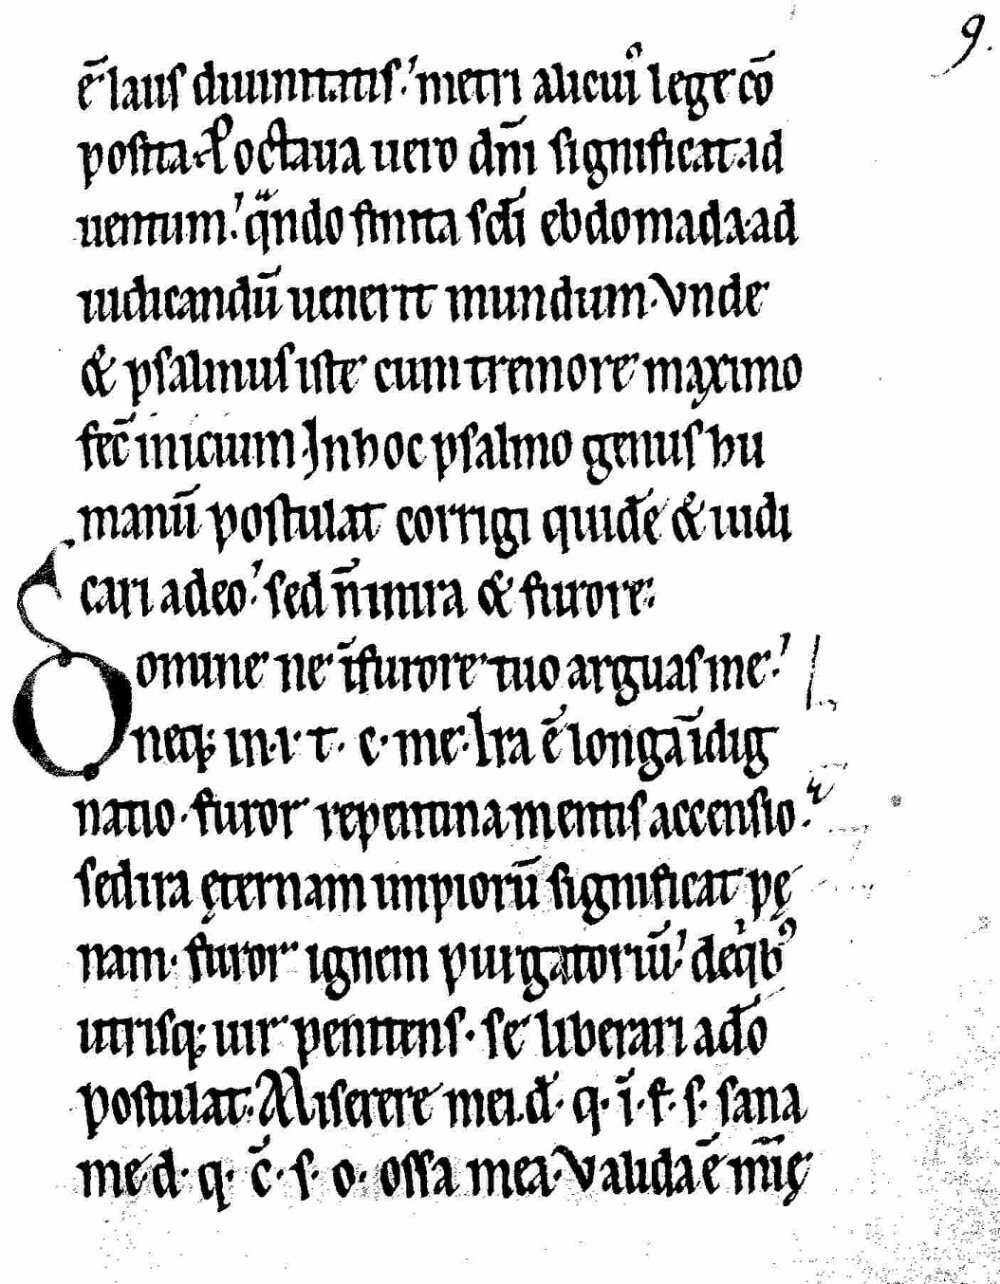 9.
ē laus diuinitatis.' metri alicui᾽ lege cō
posita. Pͦ octaua uero dn̄i significat ad
uentum.' qᷓndo finita scd̄i ebdomada. ad
iudicandū uenerit mundum. Vnde
& psalmus iste cum tremore maximo
fec̄ inicium. In hoc psalmo genus hu
manū postulat corrigi quidē & iudi
cari a deo.' sed n̄ in ira & furore.
Domine ne ī furore tuo arguas me.'
neq; in. i. t. c. me. Ira ē longa īdig
natio. furor repentina mentis accensio.
sed ira ęternam impiorū significat pę
nam. furor ignem purgatoriū.' de qͥbꝰ
utrisq; uir penitens. se liberari a dō
postulat. Miserere mei. d̄. q. ī. f. s. sana
me d. q. c̄. s. o. ossa mea. Valida ē m̄ię